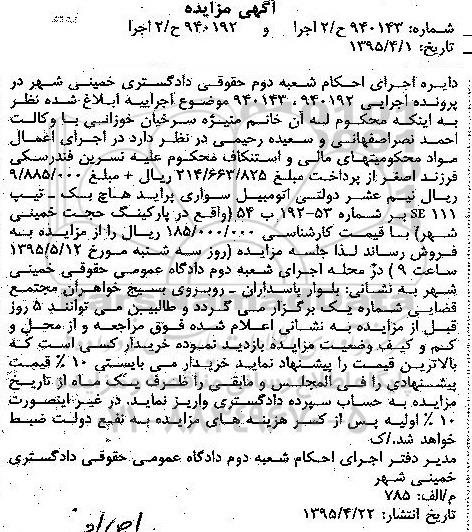 آگهی مزایده
شماره: ۹۴۰۱۴۳ ح/۲ اجرا و ۹۴۰۱۹۲ ح/۲ اجرا
تاریخ: ۱۳۹۵/۴/۱
دایره اجرای احکام شعبه دوم حقوقی دادگستری خمینی شهر در
پرونده اجرایی ۹۴۰۱۹۲ - ۹۴۰۱۴۳ موضوع اجراییه ابلاغ شده نظر
به اینکه محکوم له آن خانم منیژه سرخیان خوزانی با وکالت
احمد نصراصفهانی و سعیده رحیمی در نظر دارد در اجرای اعمال
مواد محکومیتهای مالی و استنکاف محکوم علیه نسرین فندرسکی
فرزند اصغر از پرداخت مبلغ ۲۱۴/۶۶۳/۸۲۵ ریال + مبلغ ۹/۸۸۵/۰۰۰
ریال نیم عشر دولتی اتومبیل سواری پراید هاچ بک - تیپ
SE ۱۱۱ بر شماره ۵۳-۱۹۲ ب ۵۴ (واقع در پارکینگ حجت خمینی
شهر) با قیمت کارشناسی ۱۸۵/۰۰۰/۰۰۰ ریال را از مزایده به
فروش رساند لذا جلسه مزایده (روز سه شنبه مورخ ۱۳۹۵/۵/۱۲
ساعت ۹ ) در محله اجرای شعبه دوم دادگاه عمومی حقوقی خمینی
شهر به نشانی: بلوار پاسداران - روبروی بسیج خواهران مجتمع
قضایی شماره یک برگزار می گردد و طالبین می توانند ۵ روز
قبل از مزایده به نشانی اعلام شده فوق مراجعه و از محل و
کم و کیف وضعیت مزایده بازدید نموده خریدار کسی است که
بالاترین قیمت را پیشنهاد نماید خریدار می بایستی ۱۰ ٪ قیمت
پیشنهادی را فی المجلس و مابقی را ظرف یک ماه از تاریخ
مزایده به حساب سپرده دادگستری واریز نماید. در غیر اینصورت
۱۰ ٪ اولیه پس از کسر هزینه های مزایده به نفع دولت ضبط
خواهد شد./ک
مدیر دفتر اجرای احکام شعبه دوم دادگاه عمومی حقوقی دادگستری
خمینی شهر
م/الف: ۷۸۵
تاریخ انتشار: ۱۳۹۵/۴/۲۲